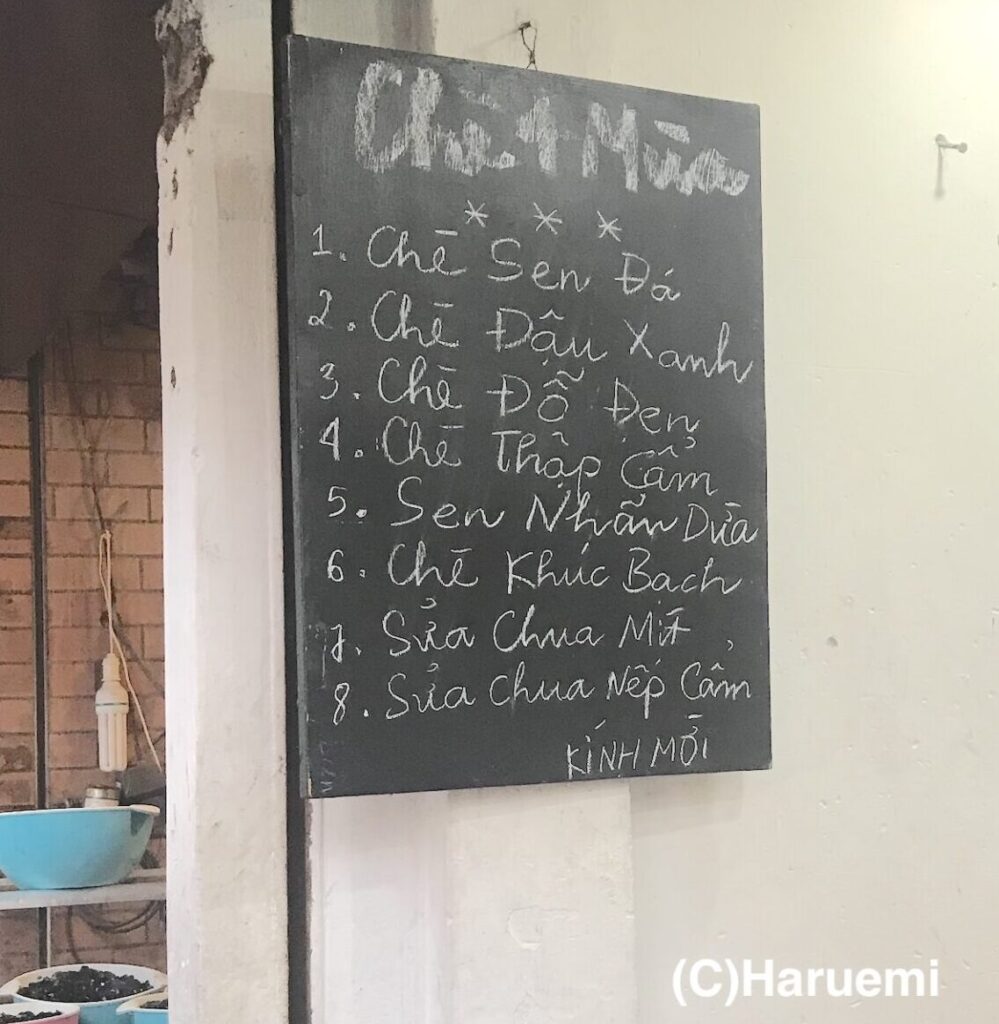 Chè 4 Mùa
* * *
1. Chè Sen Đá
2. Chè Đậu Xanh
3. Chè Đỗ Đen
4. Chè Thập Cẩm
5. Sen Nhãn Dừa
6. Chè Khúc Bạch
7. Sửa Chua Mít
8. Sửa Chua Nếp Cẩm
KÍNH MỜI
(C)Haruemi